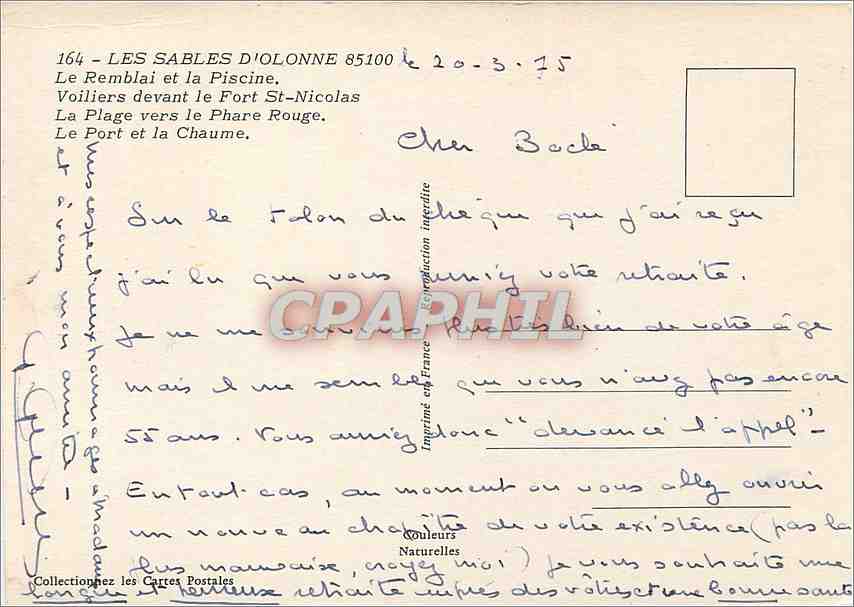 164 - LES SABLES D'OLONNE 85100
Le Remblai et la Piscine.
Voiliers devant le Fort St-Nicolas
La Plage vers le Phare Rouge.
Le Port et la Chaume.
le 20-3-75
Cher
Sur le talon du chèque que j'ai reçu
j'ai lu que vous preniez votre retraite.
Je ne me souviens plus très bien de votre âge
mais il me semble que vous n'avez pas encore
55 ans. Vous auriez donc "devancé l'appel" -
En tout-cas, au moment où vous allez ouvrir
un nouveau chapître de votre existence (pas la
plus mauvaise, croyez moi) je vous souhaite une
longue et heureuse retraite auprès des vôtres et une bonne santé
Mes respectueux hommages à Madame
et à vous mon amitié -
Imprimé en France Reproduction interdite
Couleurs
Naturelles
Collectionnez les Cartes Postales
CPARPHIL